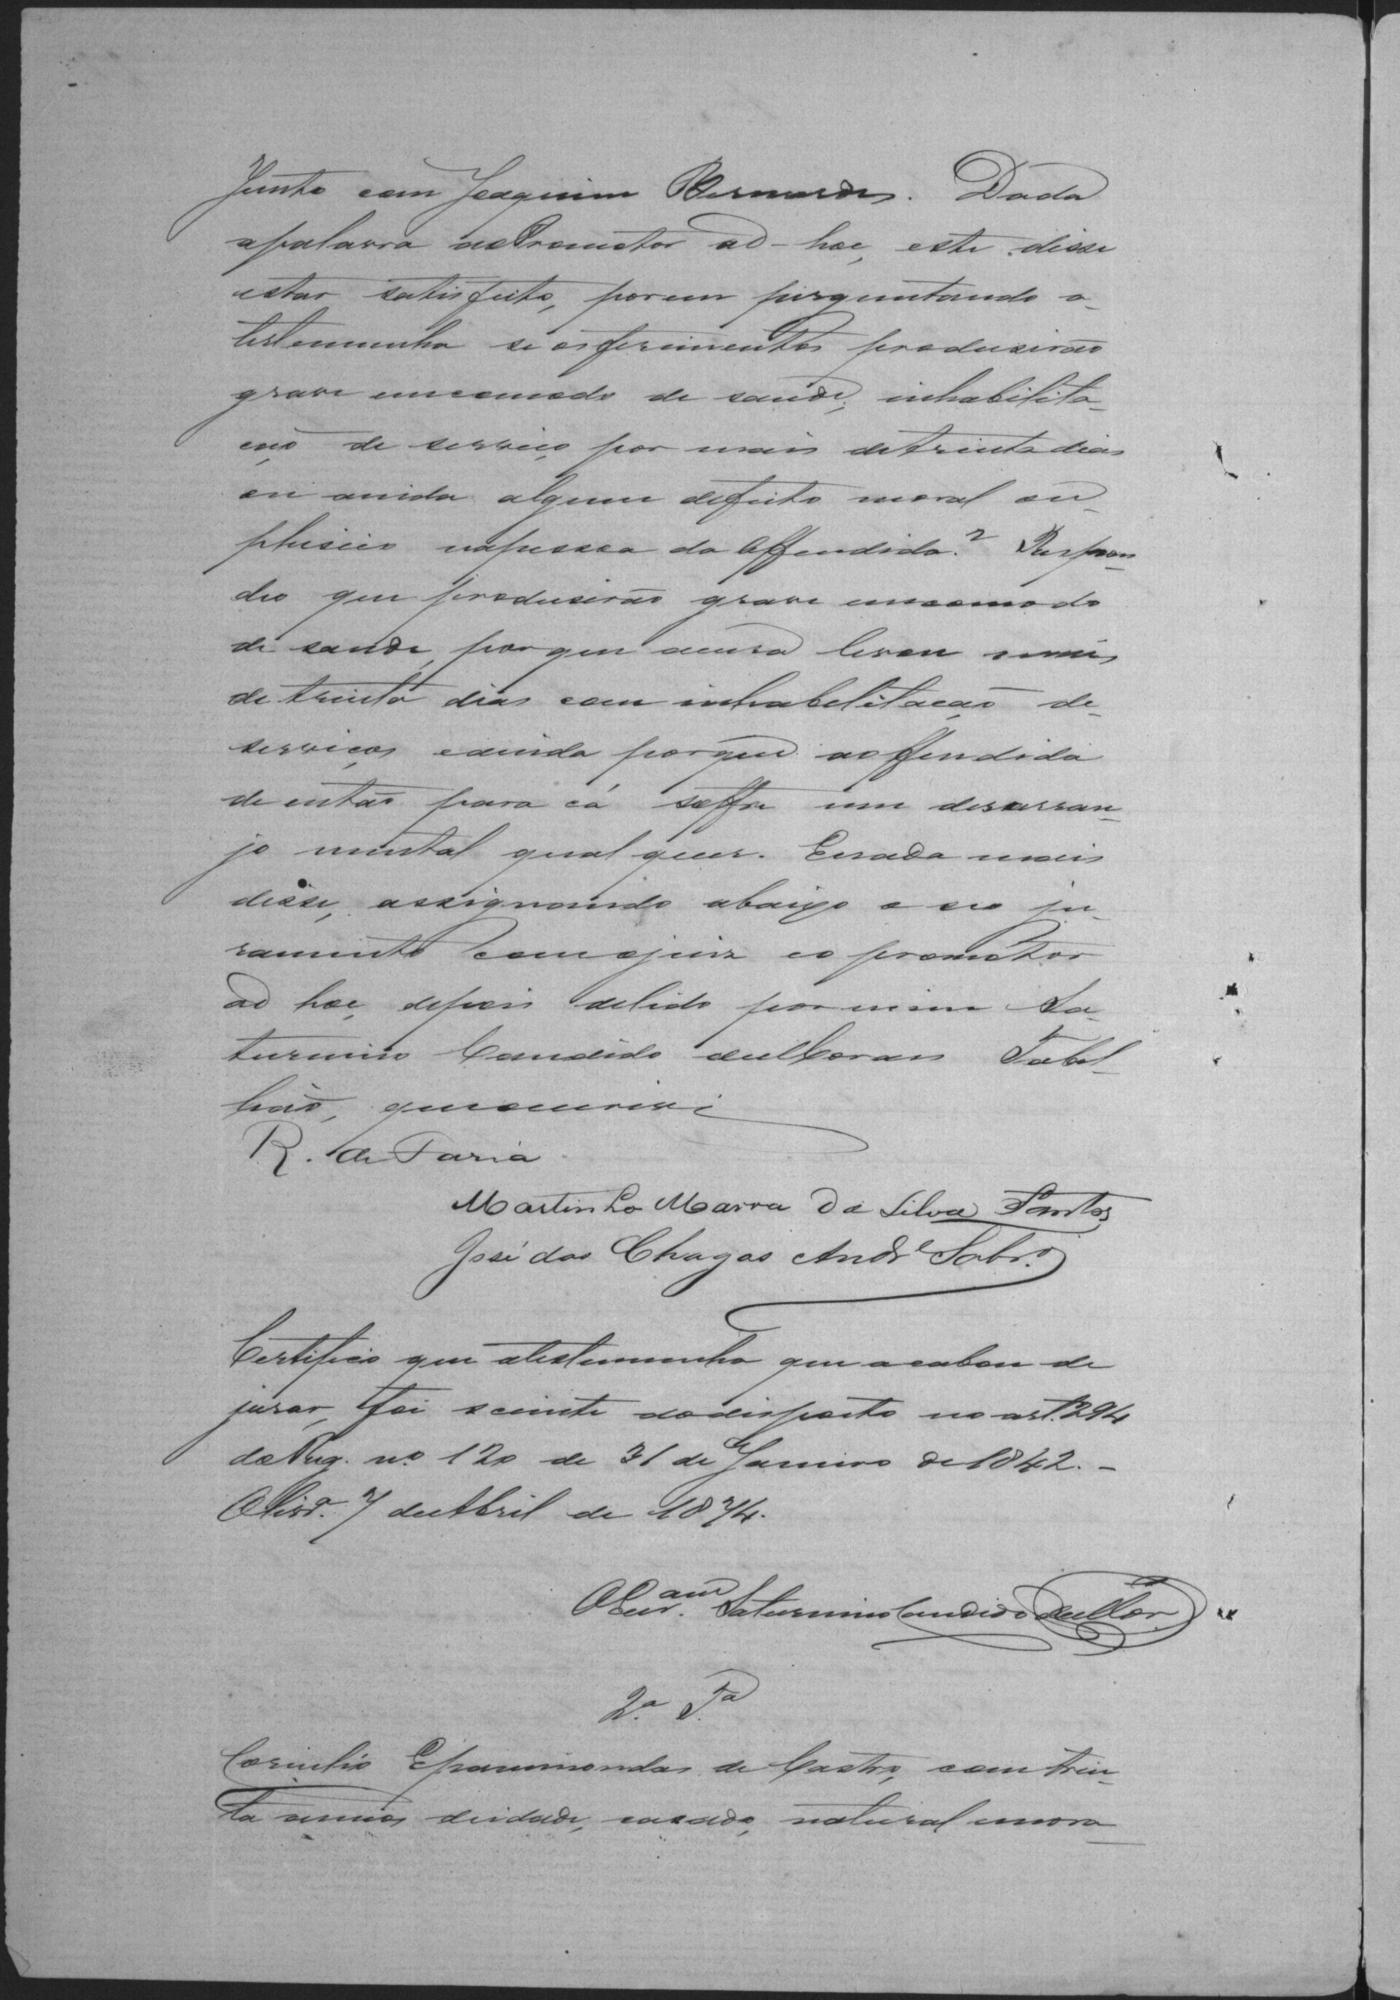 Junto com Joaquim Bernardes. Dada
apalavra aoPromotor ad-hoc, este disse
estar satisfeito, porem perguntando a
testemunha se osferimentos produsirão
grave encomodo de saude, inhabilita-
ção de serviço por mais detrinta dias
ou ainda algum defeito moral ou
phisico napessoa da Offendida? Respon-
deo que produsirão grave encomodo
de saude, porque acura levou mais
detrinta dias com inhabilitação de
serviços eainda porque aoffendida
de então para cá soffre um desarran-
jo mental qual quer. Enada mais
disse, assignando abaixo a seo ju-
ramento comojuiz eo promotor
ad hoc, depois delido por mim Sa-
turnino Candido Tabel-
lião, queescrivi
R. de Faria
Martinho Marra Da Silva Santos
José das Chagas Andr.e Sobr.o
Certifico que atestemunha que acabou de
jurar, foi sciente dodisposto no art. 294
doReg. nº 120 de 31 de Janeiro de 1842. -
Olivr.a 7 deAbril de 1874.
OEscr.am Saturnino Candido
2.a T.a
Cornelio Epaminondas de Castro, com trin-
ta annos deidade, casado, natural emora-